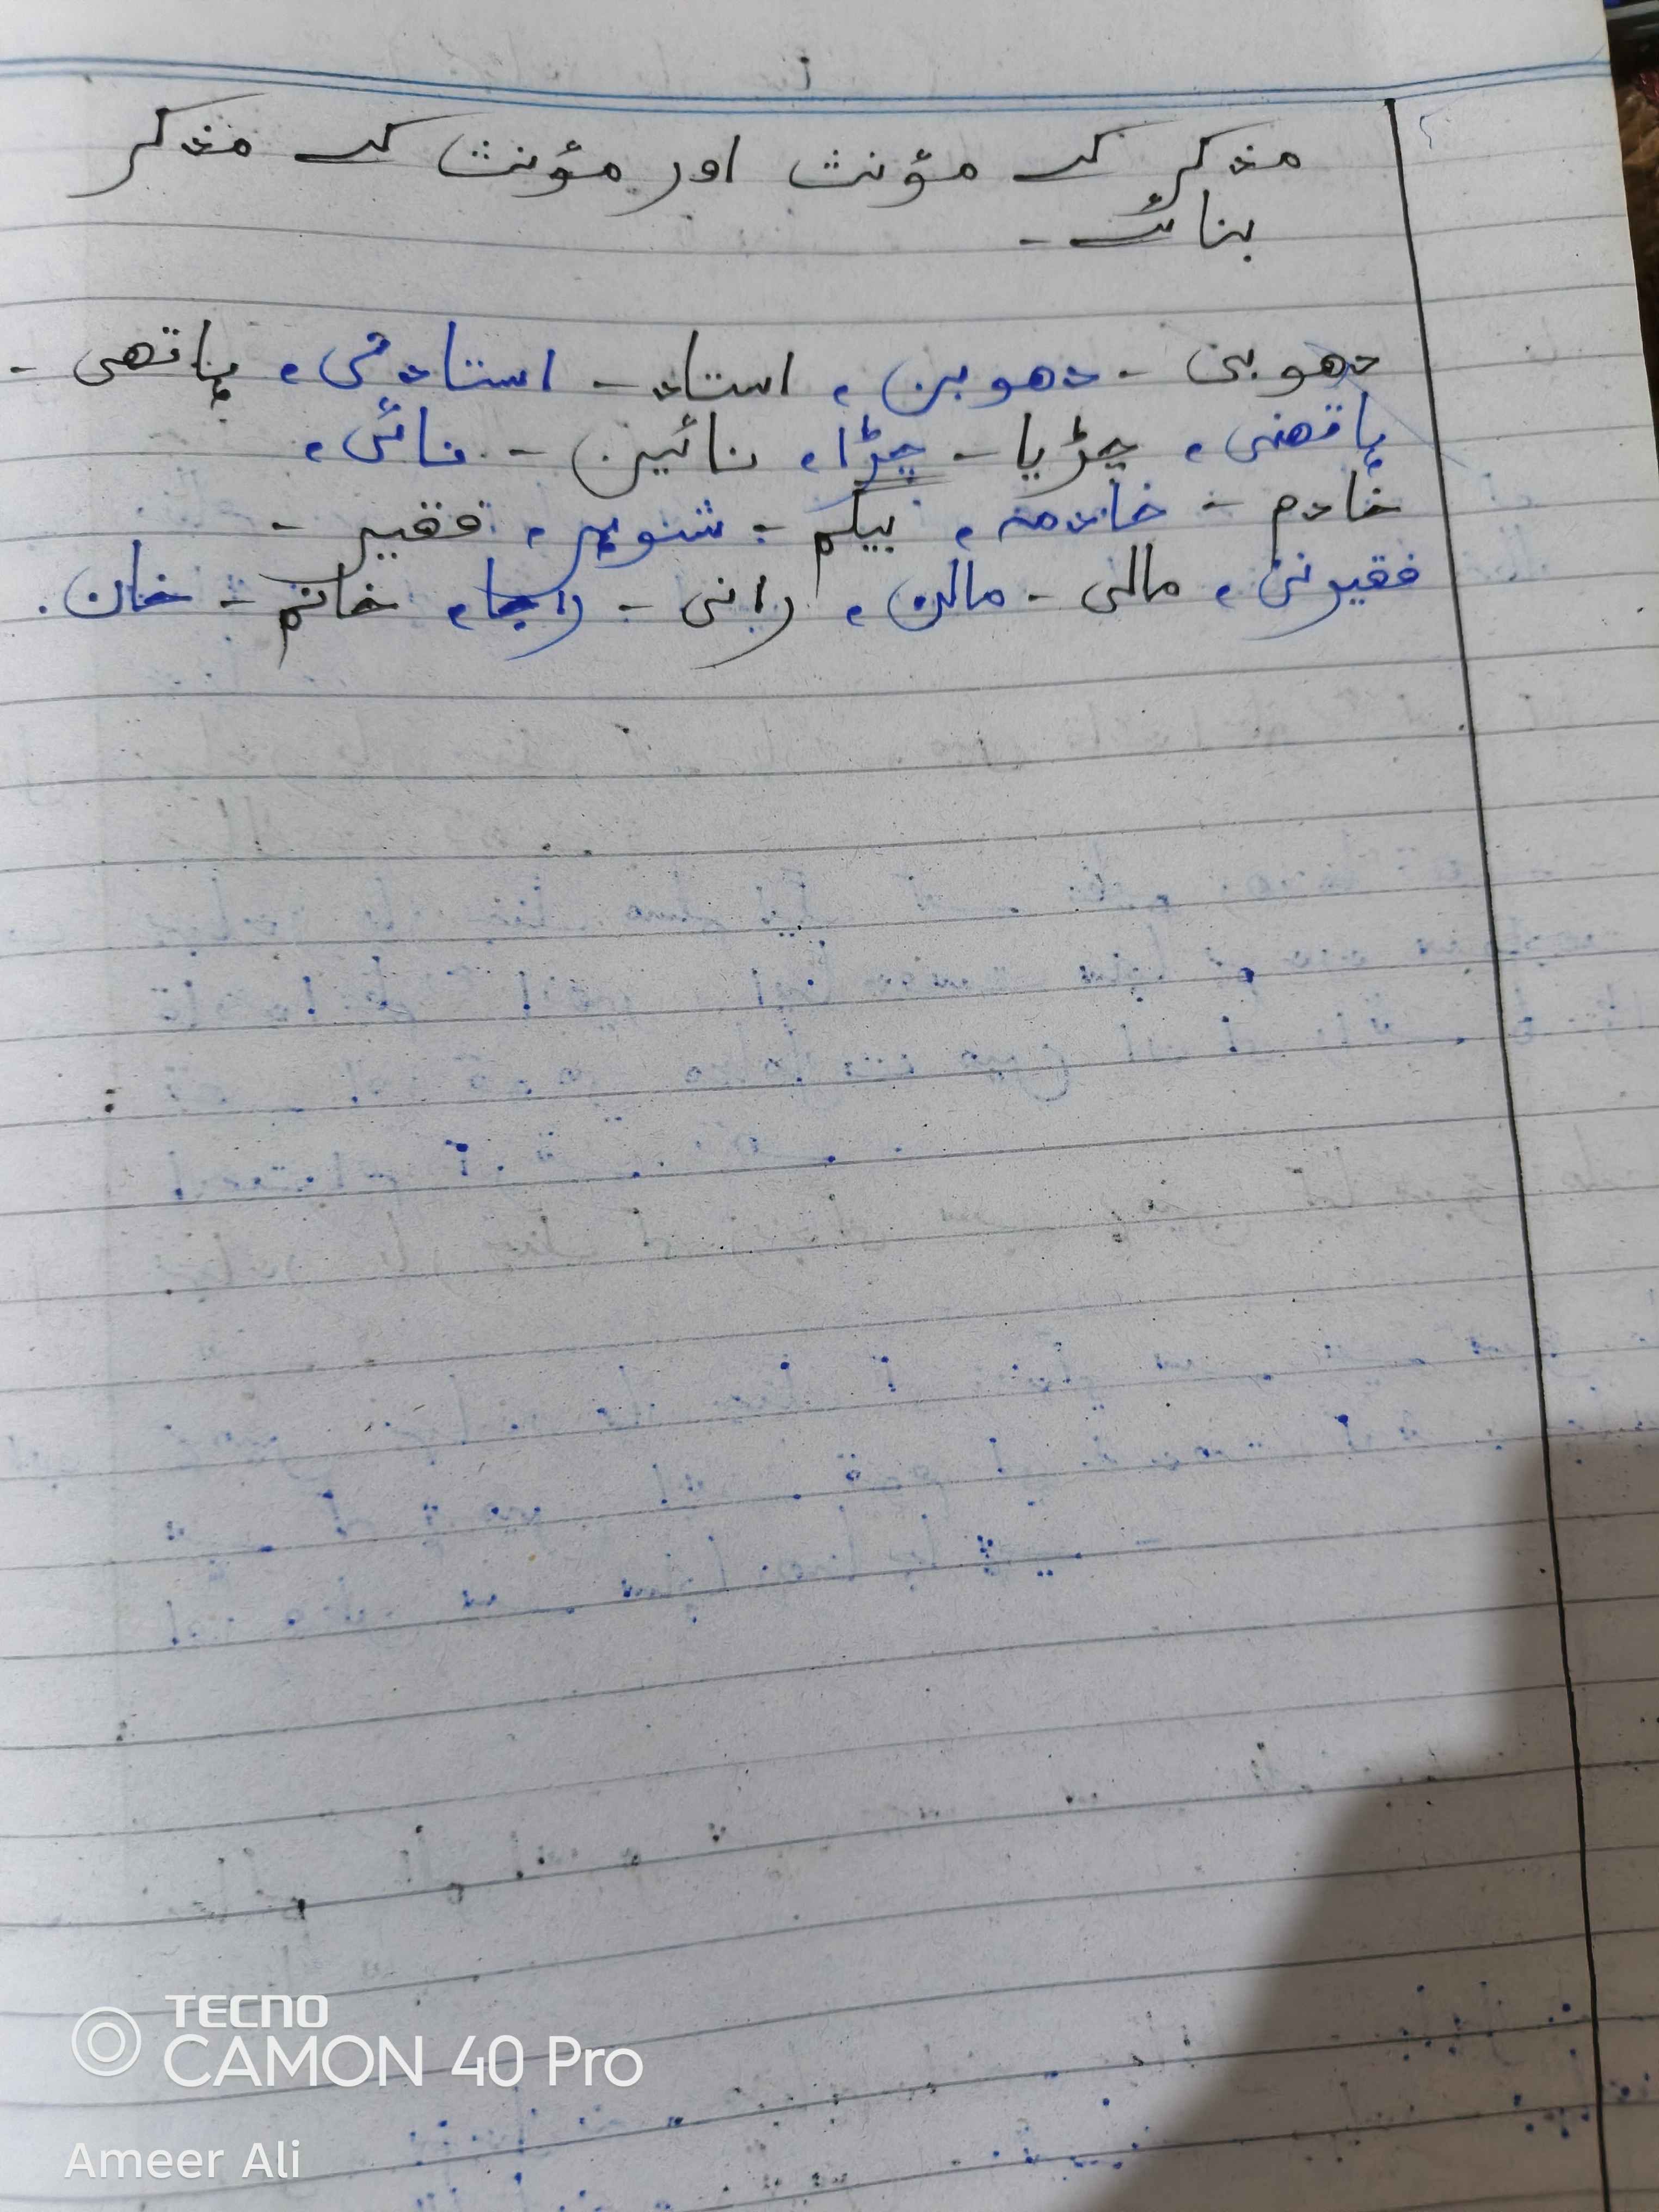 مذکر کے مؤنث اور مؤنث کے مذکر
بنائے -
دھوبی - دھوبن، استاد - استادنی، ہاتھی -
ہاتھنی، چڑیا - چڑا، نائین - نائی،
خادم - خادمہ، بیگم - شوہر، فقیر -
فقیرنی، مالی - مالن، رانی - راجا، خانم - خان.
TECNO
CAMON 40 Pro
Ameer Ali